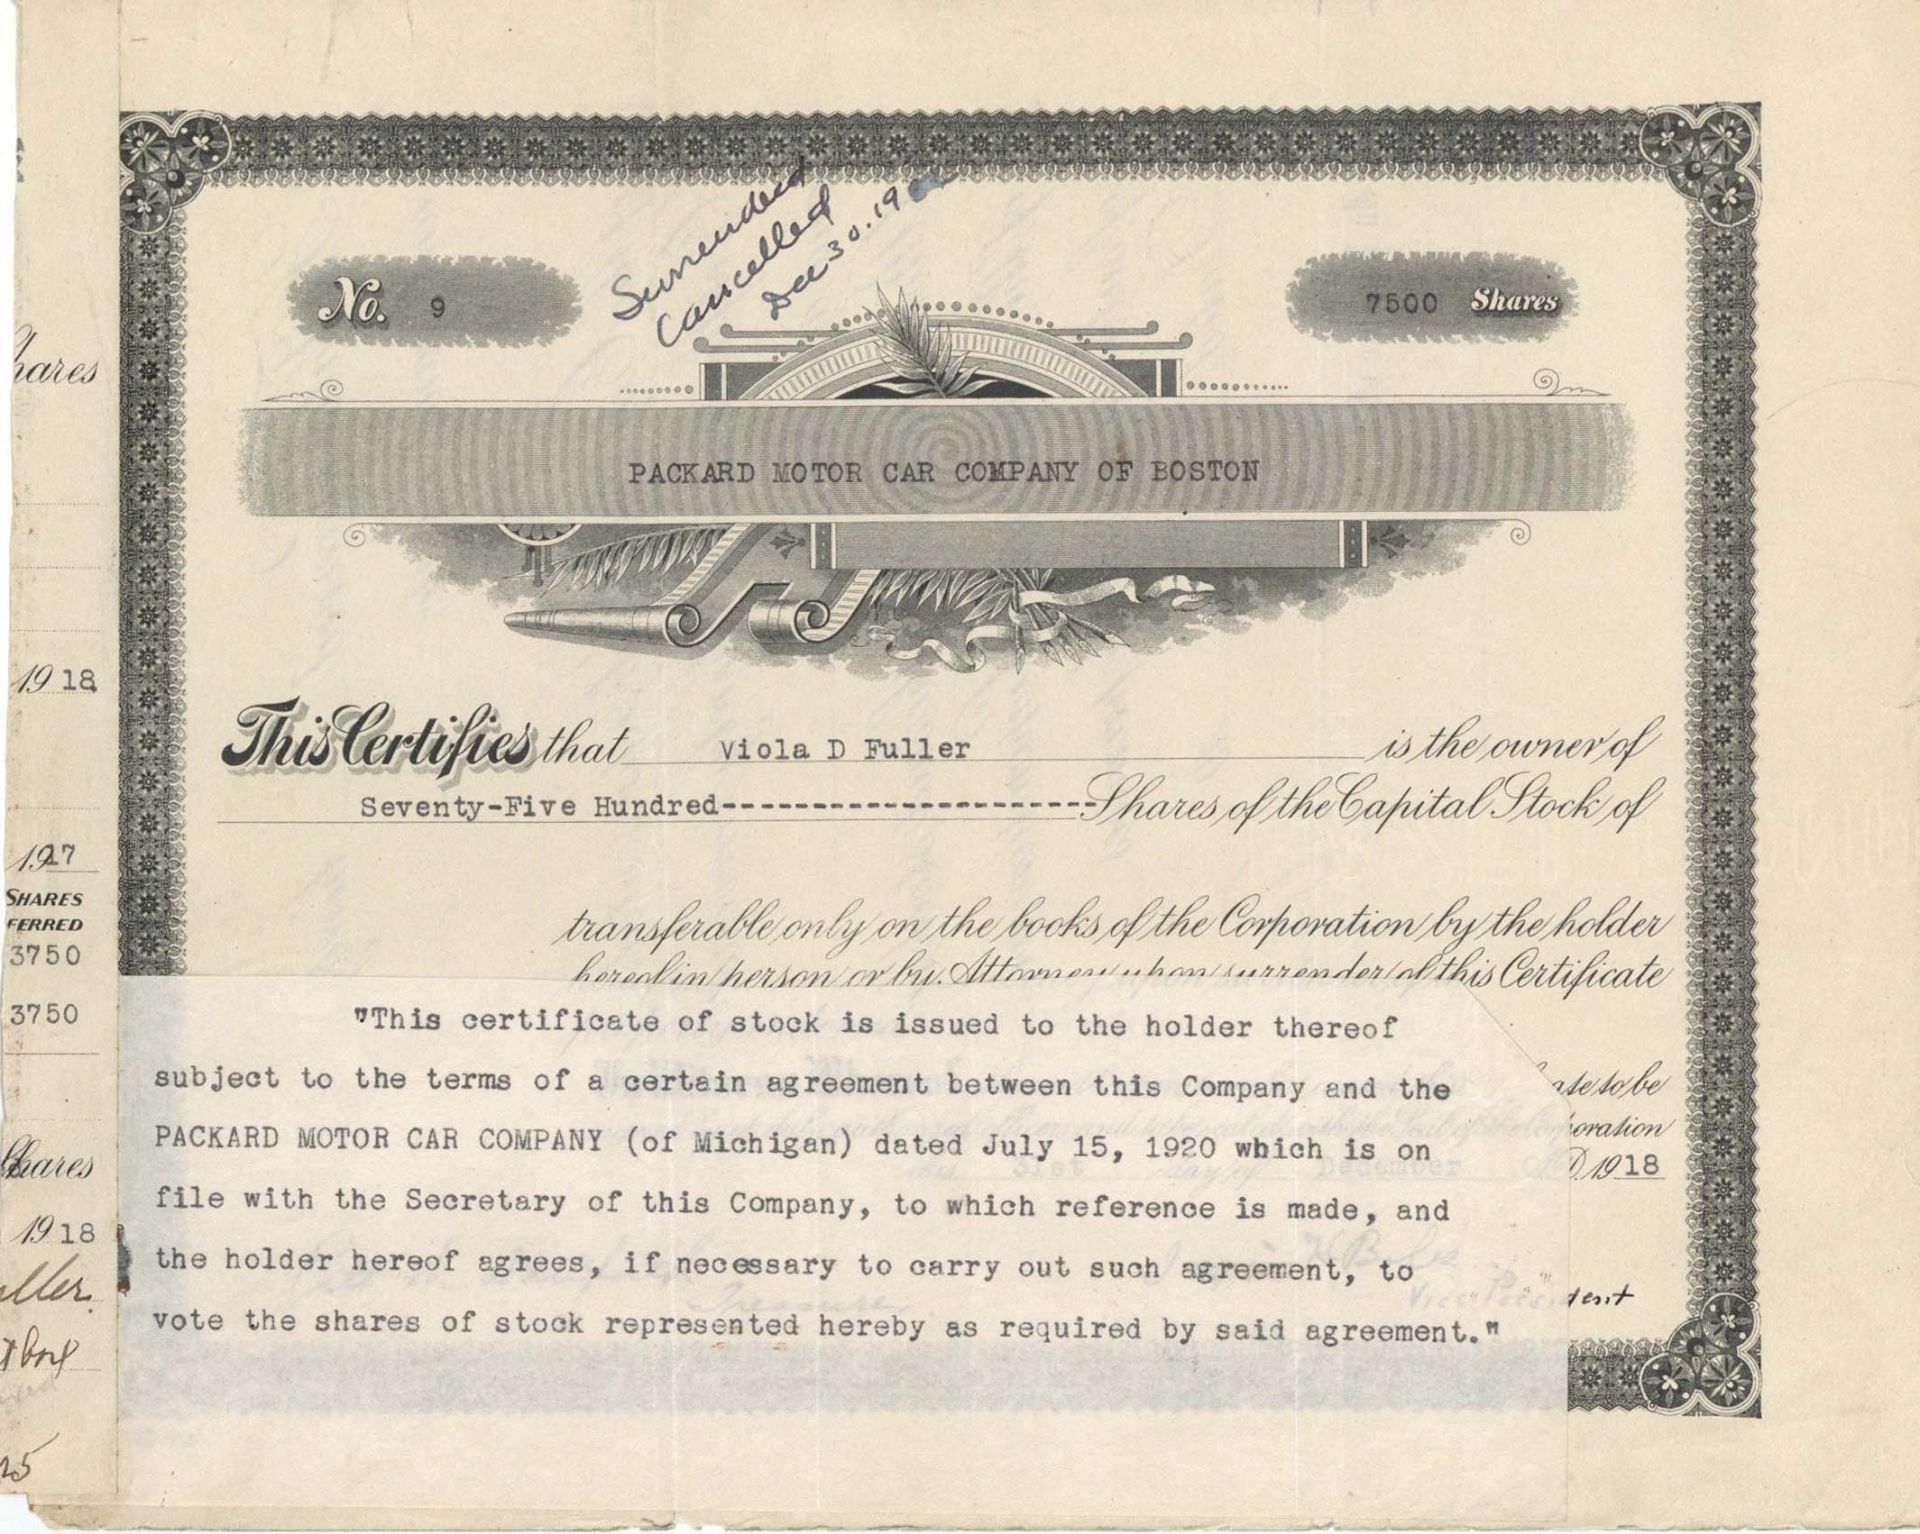 Surrendered
Cancelled
Dec 30. 19
No. 9
7500 Shares
PACKARD MOTOR CAR COMPANY OF BOSTON
This Certifies that Viola D Fuller is the owner of
Seventy-Five Hundred---------------------- Shares of the Capital Stock of
transferable only on the books of the Corporation by the holder
hereof in person or by Attorney upon surrender of this Certificate
"This certificate of stock is issued to the holder thereof
subject to the terms of a certain agreement between this Company and the
PACKARD MOTOR CAR COMPANY (of Michigan) dated July 15, 1920 which is on
file with the Secretary of this Company, to which reference is made, and
the holder hereof agrees, if necessary to carry out such agreement, to
vote the shares of stock represented hereby as required by said agreement."
to be
oration
31st day of December
D 1918
Vice President
Treasurer
hares
1918
1917
SHARES
FERRED
3750
3750
Shares
1918
ller.
25